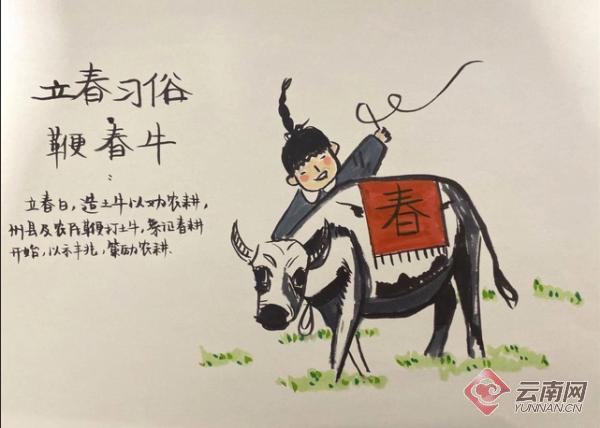 立春习俗
鞭春牛
立春日，造土牛以劝农耕，
州县及农民鞭打土牛，象征春耕
开始，以示丰兆，策励农耕。
春
云南网
YUNNAN.CN